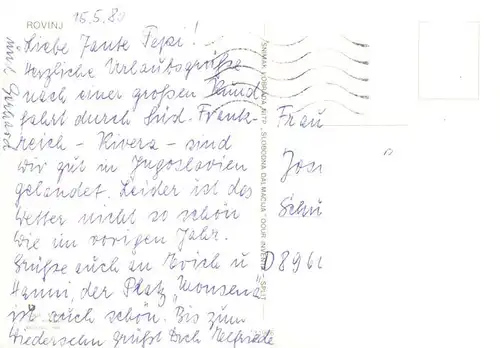 ROVINJ 15.5.80
Liebe Tante Pepi!
Herzliche Urlaubsgrüße
nach einer großen Rund
fahrt durch Süd. Frank-
reich - Rivera - sind
wir gut in Jugoslavien
gelandet. Leider ist das
Wetter nicht so schön
wie im vorigen Jahr.
Grüße auch an Erich u
Hanni, der Platz „Monsena"
ist auch schön. Bis zum
Wiedersehn grüßt Dich Helfriede
und Gerhard
Frau
Jos
Schu
D 896